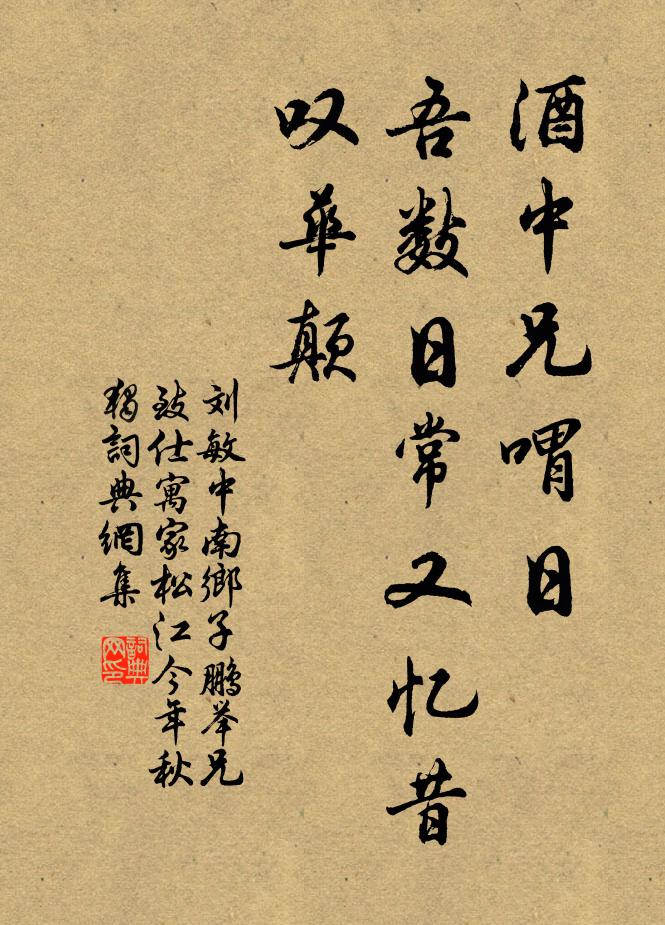 酒中兄喟日
吾数日常又忆昔
叹华颠
刘敏中南乡子鹏举兄
致仕寓家松江今年秋
独词典网集
词典网印